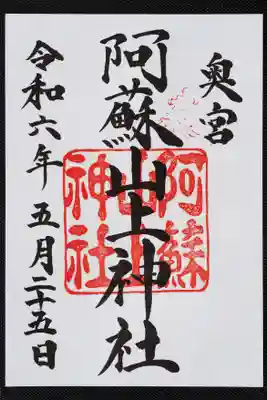 奥宮
阿蘇山上神社
令和六年 五月二十五日
阿蘇
山上
神社